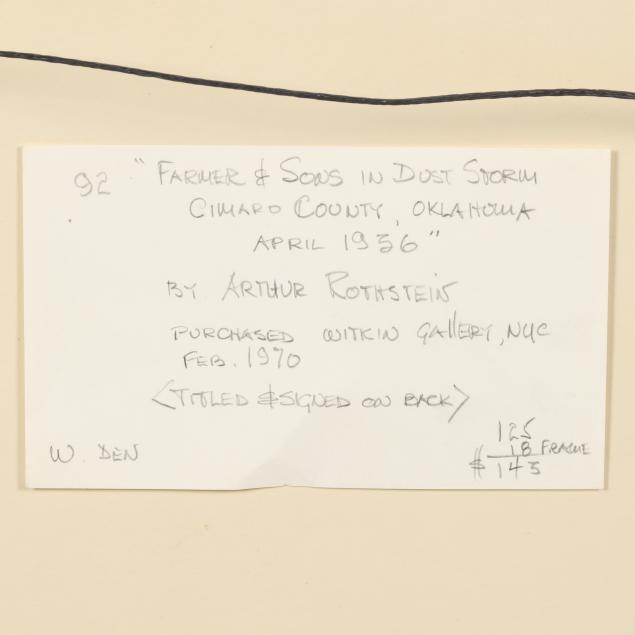 92 "FARMER & SONS IN DUST STORM
CIMARO COUNTY, OKLAHOMA
APRIL 1936"
BY ARTHUR ROTHSTEIN
PURCHASED WITKIN GALLERY, NYC
FEB. 1970
<TITLED & SIGNED ON BACK>
125
18 FRAME
W. DEN $ 143